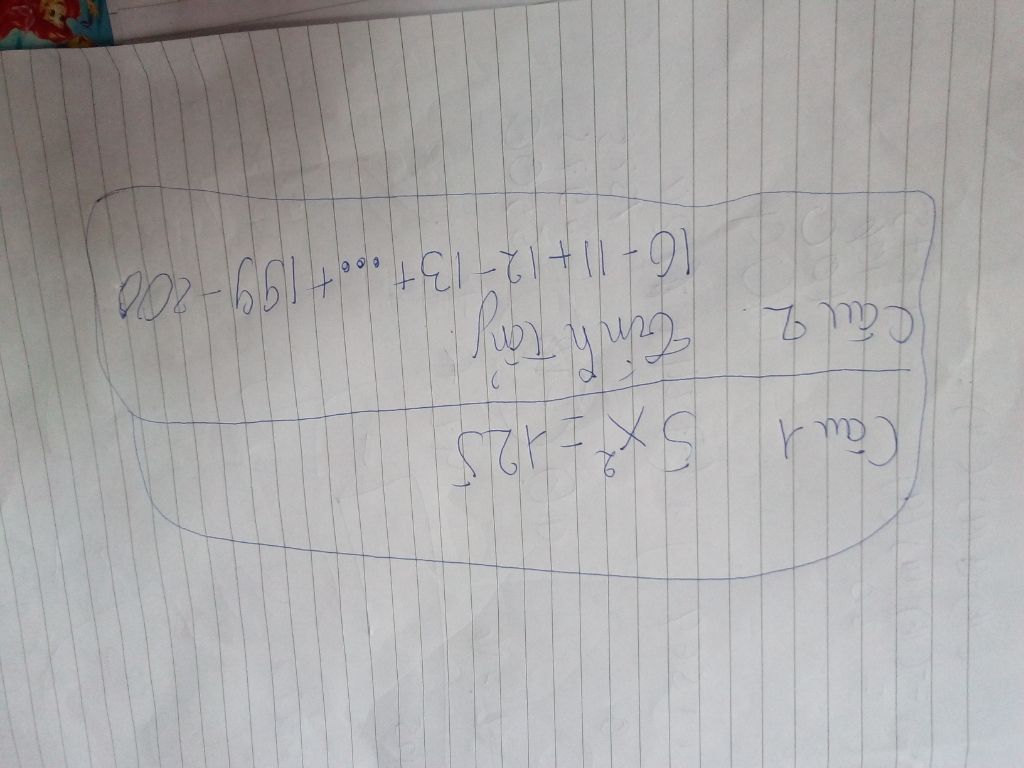 Câu 1 5x² = 125
Câu 2 tính Tổng
10 - 11 + 12 - 13 + ... + 199 - 200